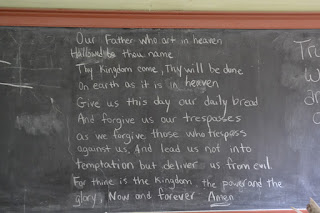 Our Father who art in heaven
Hallowed be thou name
Thy Kingdom come, Thy will be done
On earth as it is in heaven
Give us this day our daily bread
And forgive us our trespasses
as we forgive those who trespass
against us, And lead us not into
temptation but deliver us from evil
For thine is the Kingdom, the power and the
glory, Now and forever Amen